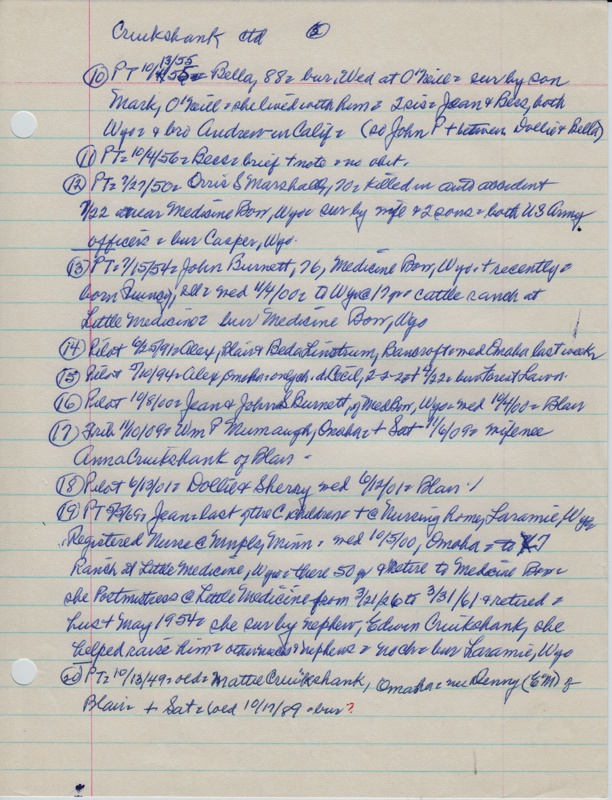 Cruikshank ctd ③
⑩ PT 10/13/55 = Bella, 88 = bur. Wed at O'Neill = sur by son
Mark, O'Neill = she lived with him = 2 sis = Jean & Bess, both
Wyo = & bro Andrew in Calif = (so John P + between Dollie & Bella)
⑪ PT = 10/4/56 = Bess = brief + note = no obit.
⑫ PT = 7/27/50 = Orris S Marshall, 70 = killed in auto accident
7/22 near Medicine Bow, Wyo = sur by wife & 2 sons = both US Army
officers = bur Casper, Wyo.
⑬ PT = 7/15/54 = John Burnett, 76, Medicine Bow, Wyo. + recently =
born Quincy, Ill = wed 4/4/00 = to Wyo @ 17 yr = cattle ranch at
Little Medicine = bur Medicine Bow, Wyo
⑭ Pilot 6/25/91 = Alex, Blair & Beda Linstrum, Bancroft = wed Omaha last week
⑮ Pilot 5/10/94 = Alex, Omaha = only ch. d. Cecil, 2-2-28 + 4/22 = bur Forest Lawn.
⑯ Pilot 10/8/00 = Jean & John S Burnett, of Med Bow, Wyo = wed 10/4/00 = Blair
⑰ Trib 11/10/09 = Wm P Mumaugh, Omaha = + Sat 11/6/09 = wife nee
Anna Cruikshank of Blair -
⑱ Pilot 6/13/01 = Dollie & Sherry wed 6/12/01 = Blair
⑲ PT 69 = Jean = last of the C children + @ Nursing home, Laramie, Wyo =
Registered Nurse @ Mnpls, Minn = wed 10/5/00, Omaha = to 7
Ranch at Little Medicine, Wyo = there 50 yr & retire to Medicine Bow =
she Postmistress @ Little Medicine from 3/21/26 to 3/31/61 & retired =
hus + May 1954 = she sur by nephew, Edwin Cruikshank, she
helped raise him = other nieces & nephews = no ch = bur Laramie, Wyo
⑳ PT = 10/13/49 = wed = Mattie Cruikshank, Omaha = nee Denny (EM) of
Blair = + Sat = wed 10/17/89 = bur?